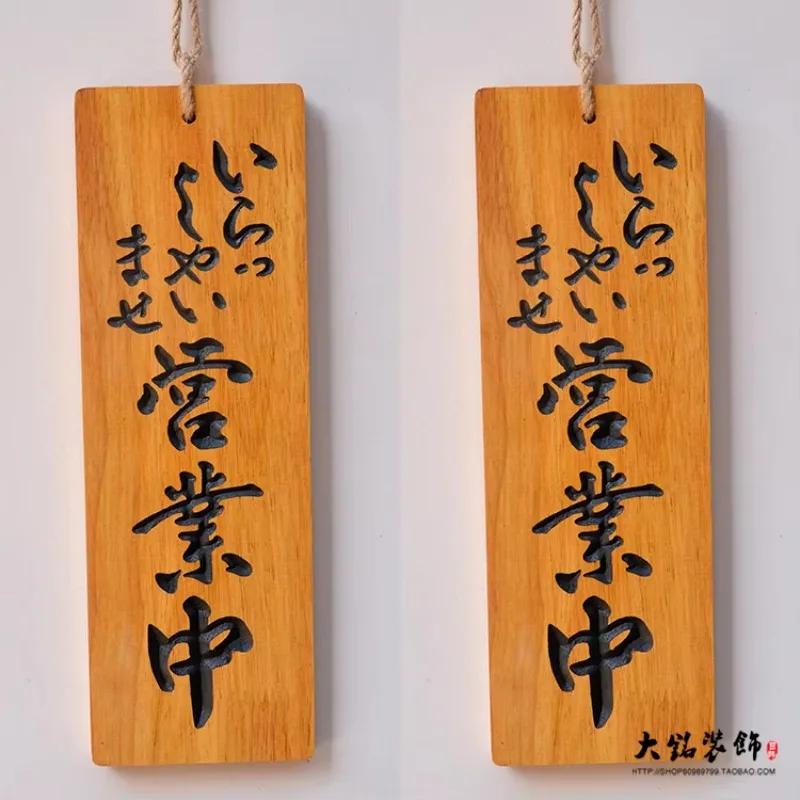 いらっ
しゃい
ませ
営業中
いらっ
しゃい
ませ
営業中
大銘裝飾
HTTP://SHOP60989799.TAOBAO.COM